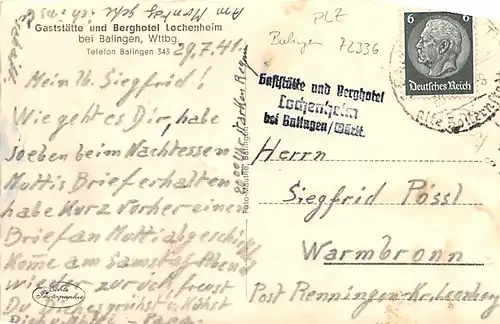 Am Montag geh ich
Gaststätte und Berghotel Lochenheim
bei Balingen, Wttbg.
Telefon Balingen 343
29.7.41.
Mein lb. Siegfried!
Wie geht es Dir, habe
soeben beim Nachtessen
Muttis Brief erhalten
habe kurz vorher einen
Brief an Mutti abgeschickt
Kome am Samstag Abend
wieder zurück, freust
Du Dich
grüsst u. küsst
Papa.
Echte
Photographie
Foto-Mauthe, Balingen
starken Regen
PLZ
Balingen 72336
6 6
Deutsches Reich
Gaststätte und Berghotel
Lochenheim
bei Balingen/Württ.
Herrn
Siegfrid Pössl
Warmbronn
Post Renningen-Kr. Leonberg